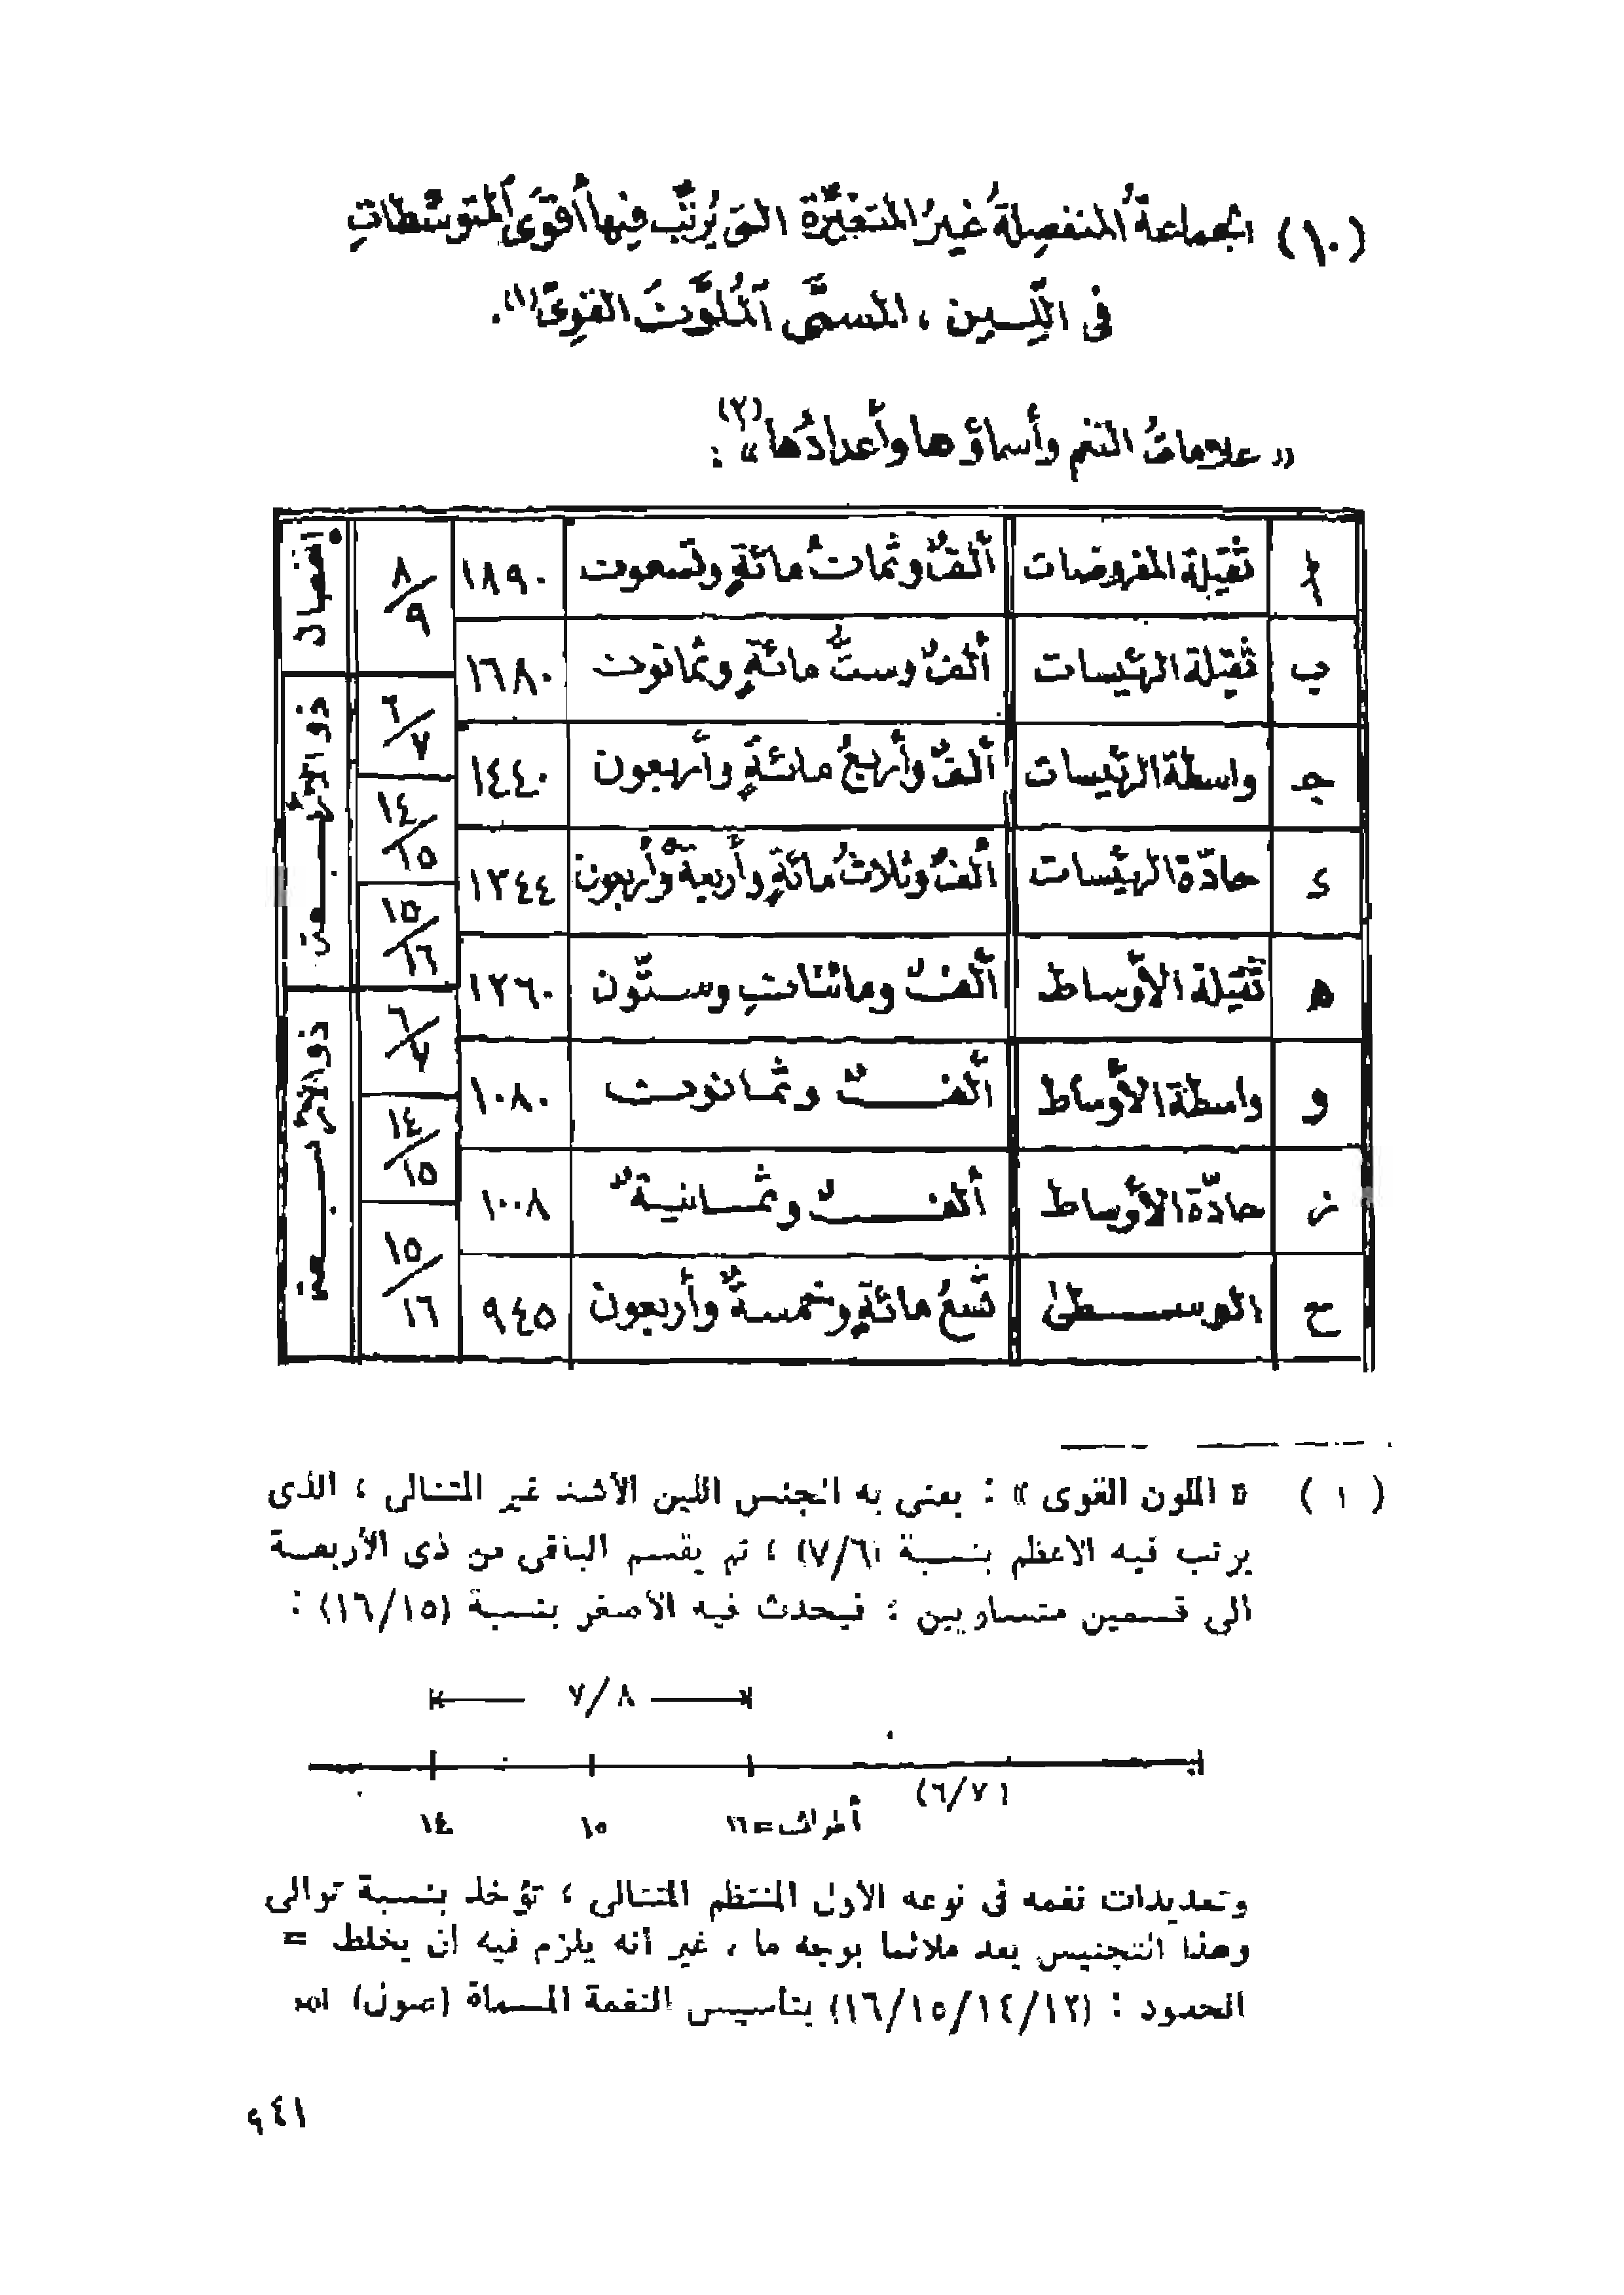 (١٠) الجماعةُ المنفصِلةُ غيرُ المتغيِّرة التى يُرتَّب فيها أقوَى المتوسِّطاتِ
فى اللِّين ، المسمَّى المُلوَّنَ القوِىَّ(١).
« علاماتُ النغم وأسماؤها وأعدادُها »(٢) :
ا ثقيلة المفروضات ألفٌ وثمانُ مائةٍ وتسعون ١٨٩٠ ٨/٩ انفصال
ب ثقيلة الرئيسات ألفٌ وستُّ مائةٍ وثمانون ١٦٨٠ ٦/٧ ذو الأربعة
ج واسطة الرئيسات ألفٌ وأربعُ مائةٍ وأربعون ١٤٤٠ ١٤/١٥
د حادّة الرئيسات ألفٌ وثلاثُ مائةٍ وأربعةٌ وأربعون ١٣٤٤ ١٥/١٦
ه ثقيلة الأوساط ألفٌ ومائتانِ وستّون ١٢٦٠ ٦/٧ ذو الأربعة
و واسطة الأوساط ألفٌ وثمانون ١٠٨٠ ١٤/١٥
ز حادّة الأوساط ألفٌ وثمانيةٌ ١٠٠٨ ١٥/١٦
ح الوسطى تسعُ مائةٍ وخمسةٌ وأربعون ٩٤٥
(١) « الملون القوى » : يعنى به الجنس اللين الأشد غير المتتالى ، الذى
يرتب فيه الاعظم بنسبة (٧/٦) ، ثم يقسم الباقى من ذى الأربعة
الى قسمين متساويين ؛ فيحدث فيه الأصغر بنسبة (١٦/١٥) :
٧/٨
(٦/٧)
أطراف=١٦ ١٥ ١٤
وتعديدات نغمه فى نوعه الاول المنتظم المتتالى ، تؤخذ بنسبة توالى
وهذا التجنيس يعد ملائما بوجه ما ، غير أنه يلزم فيه أن يخلط =
الحدود : (١٦/١٥/١٤/١٢) بتأسيس النغمة المسماة (صول)
٩٤١